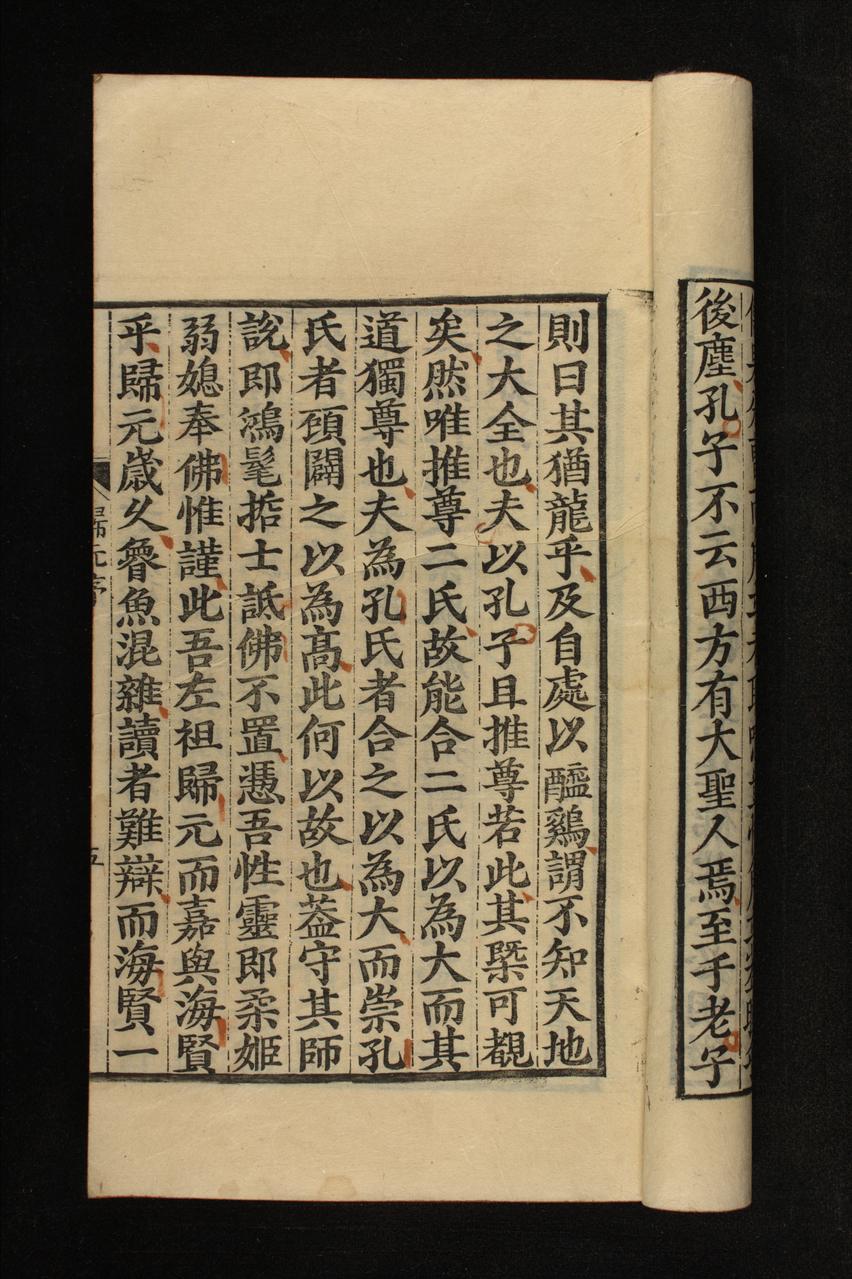 後塵孔子不云西方有大聖人焉至于老子
則曰其猶龍乎及自處以醯鷄謂不知天地
之大全也夫以孔子且推尊若此其槩可覩
矣然唯推尊二氏故能合二氏以為大而其
道獨尊也夫為孔氏者合之以為大而崇孔
氏者頋闢之以為高此何以故也葢守其師
說即鴻髦喆士詆佛不置憑吾性靈即柔姬
弱媳奉佛惟謹此吾左祖歸元而嘉與海賢
乎歸元歲久魯魚混雜讀者難辯而海賢一
歸元序
五